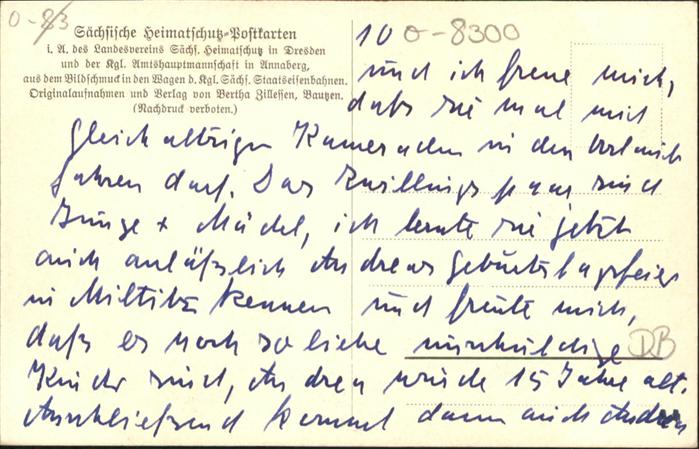 0-83
Sächsische Heimatschutz-Postkarten
i. A. des Landesvereins Sächs. Heimatschutz in Dresden
und der Kgl. Amtshauptmannschaft in Annaberg,
aus dem Bildschmuck in den Wagen d. Kgl. Sächs. Staatseisenbahnen.
Originalaufnahmen und Verlag von Bertha Zillessen, Bautzen.
(Nachdruck verboten.)
10 0-8300
und ich freue mich,
daß sie mal mit
gleichaltrigen Kameraden in den Urlaub
fahren darf. Das Zwillingspaar sind
Junge + Mädel, ich lernte sie jetzt
auch anläßlich Andreas Geburtstagsfeier
in Miltitz kennen und freute mich,
daß es noch so liebe unschuldige
DB
Kinder sind, Andrea wurde 15 Jahre alt.
Anschließend kommt dann auch Andrea